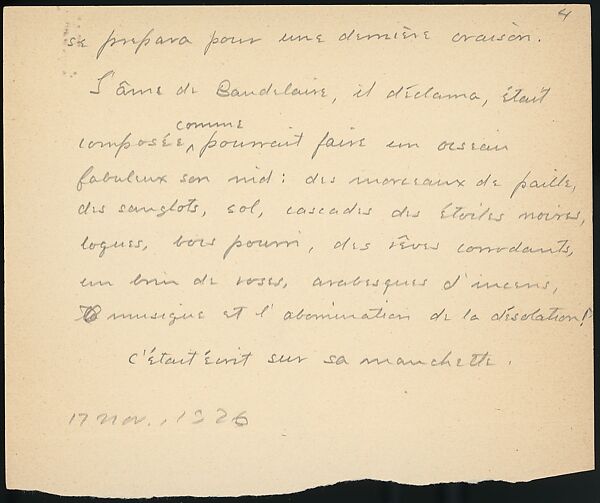 4
se prepara pour une dernière oraison.
L'âme de Baudelaire, il déclama, était
comme
composée ^ pourrait faire un oiseau
fabuleux son nid: des morceaux de paille,
des sanglots, sol, cascades des étoiles noires,
loques, bois pourri, des rêves corrodants,
un brin de roses, arabesques d'incens,
musique et l'abomination de la désolation!"
C'était écrit sur sa manchette.
17 Nov., 1926